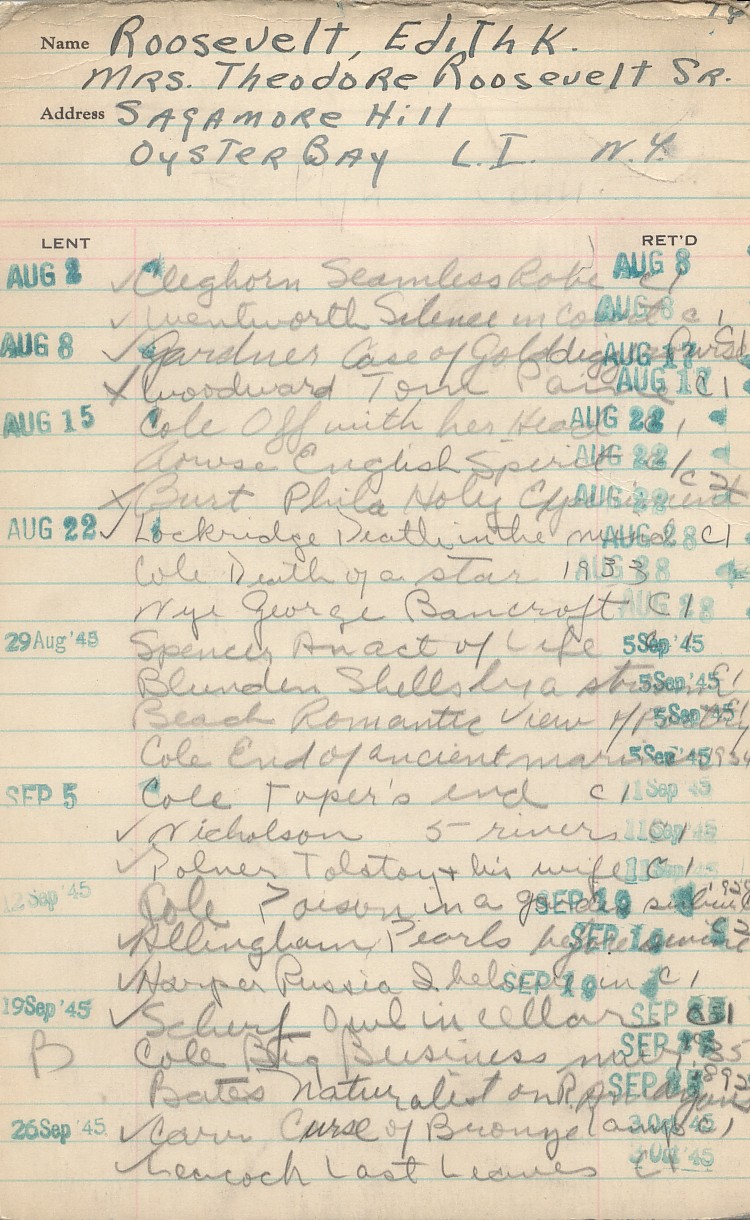 78
Name Roosevelt, Edith K.
Mrs. Theodore Roosevelt Sr.
Address Sagamore Hill
Oyster Bay L.I. N.Y.
LENT RET'D
AUG 2 ✓ Cleghorn Seamless Robe c1 AUG 8
✓ Wentworth Silence in Court c1 AUG 8
AUG 8 ✓ Gardner Case of Golddiggers Purse AUG 17
✓ Woodward Tom Paine c1 AUG 17
AUG 15 Cole Off with her Head c1 AUG 22
English Spirit c1 AUG 22
Burt Phila Holy Experiment c2 AUG 22
AUG 22 ✓ Lockridge Death in the mind c1 AUG 28
Cole Death of a star 1933 AUG 28
Nye George Bancroft c1 AUG 28
29 Aug '45 Spencer An act of Life c1 5 Sep '45
Blunden Shells by a stream c1 5 Sep '45
Beach Romantic View of Poetry 5 Sep '45
Cole End of ancient mariner 1934 5 Sep '45
SEP 5 Cole Toper's end c1 11 Sep 45
✓ Nicholson 5 rivers c1 11 Sep 45
✓ Polner Tolstoy & his wife c1 11 Sep 45
12 Sep '45 Cole Poison in a garden suburb 1929 SEP 19
✓ Allingham Pearls before swine c2 SEP 19
✓ Harper Russia I believe in c1 SEP 19
19 Sep '45 ✓ Scherf Owl in cellar c1 SEP 25
B Cole Big Business murder 1935 SEP 25
Bates Naturalist on R. Amazons 1892 SEP 25
26 Sep '45 ✓ Carr Curse of Bronze Lamp c1 3 Oct 45
✓ Leacock Last Leaves c1 3 Oct '45